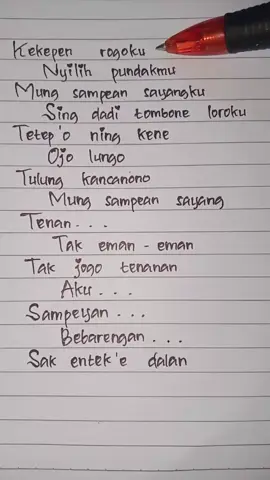 Kekepen rogoku
Nyilih pundakmu
Mung sampean sayangku
Sing dadi tombone loroku
Tetep'o ning kene
Ojo lungo
Tulung kancanono
Mung sampean sayang
Tenan...
Tak eman-eman
Tak jogo tenanan
Aku...
Sampeyan...
Bebarengan...
Sak entek'e dalan